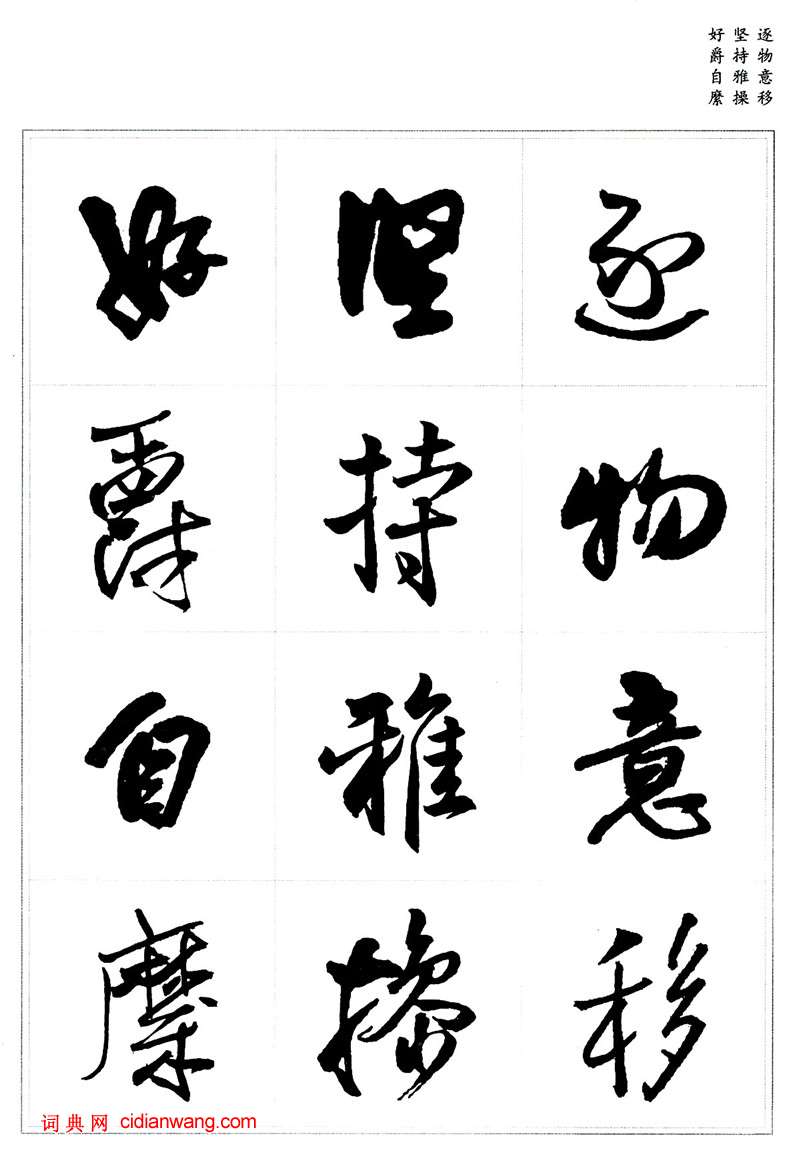 逐物意移
坚持雅操
好爵自縻
逐物意移
堅持雅操
好爵自縻
词典网 cidianwang.com